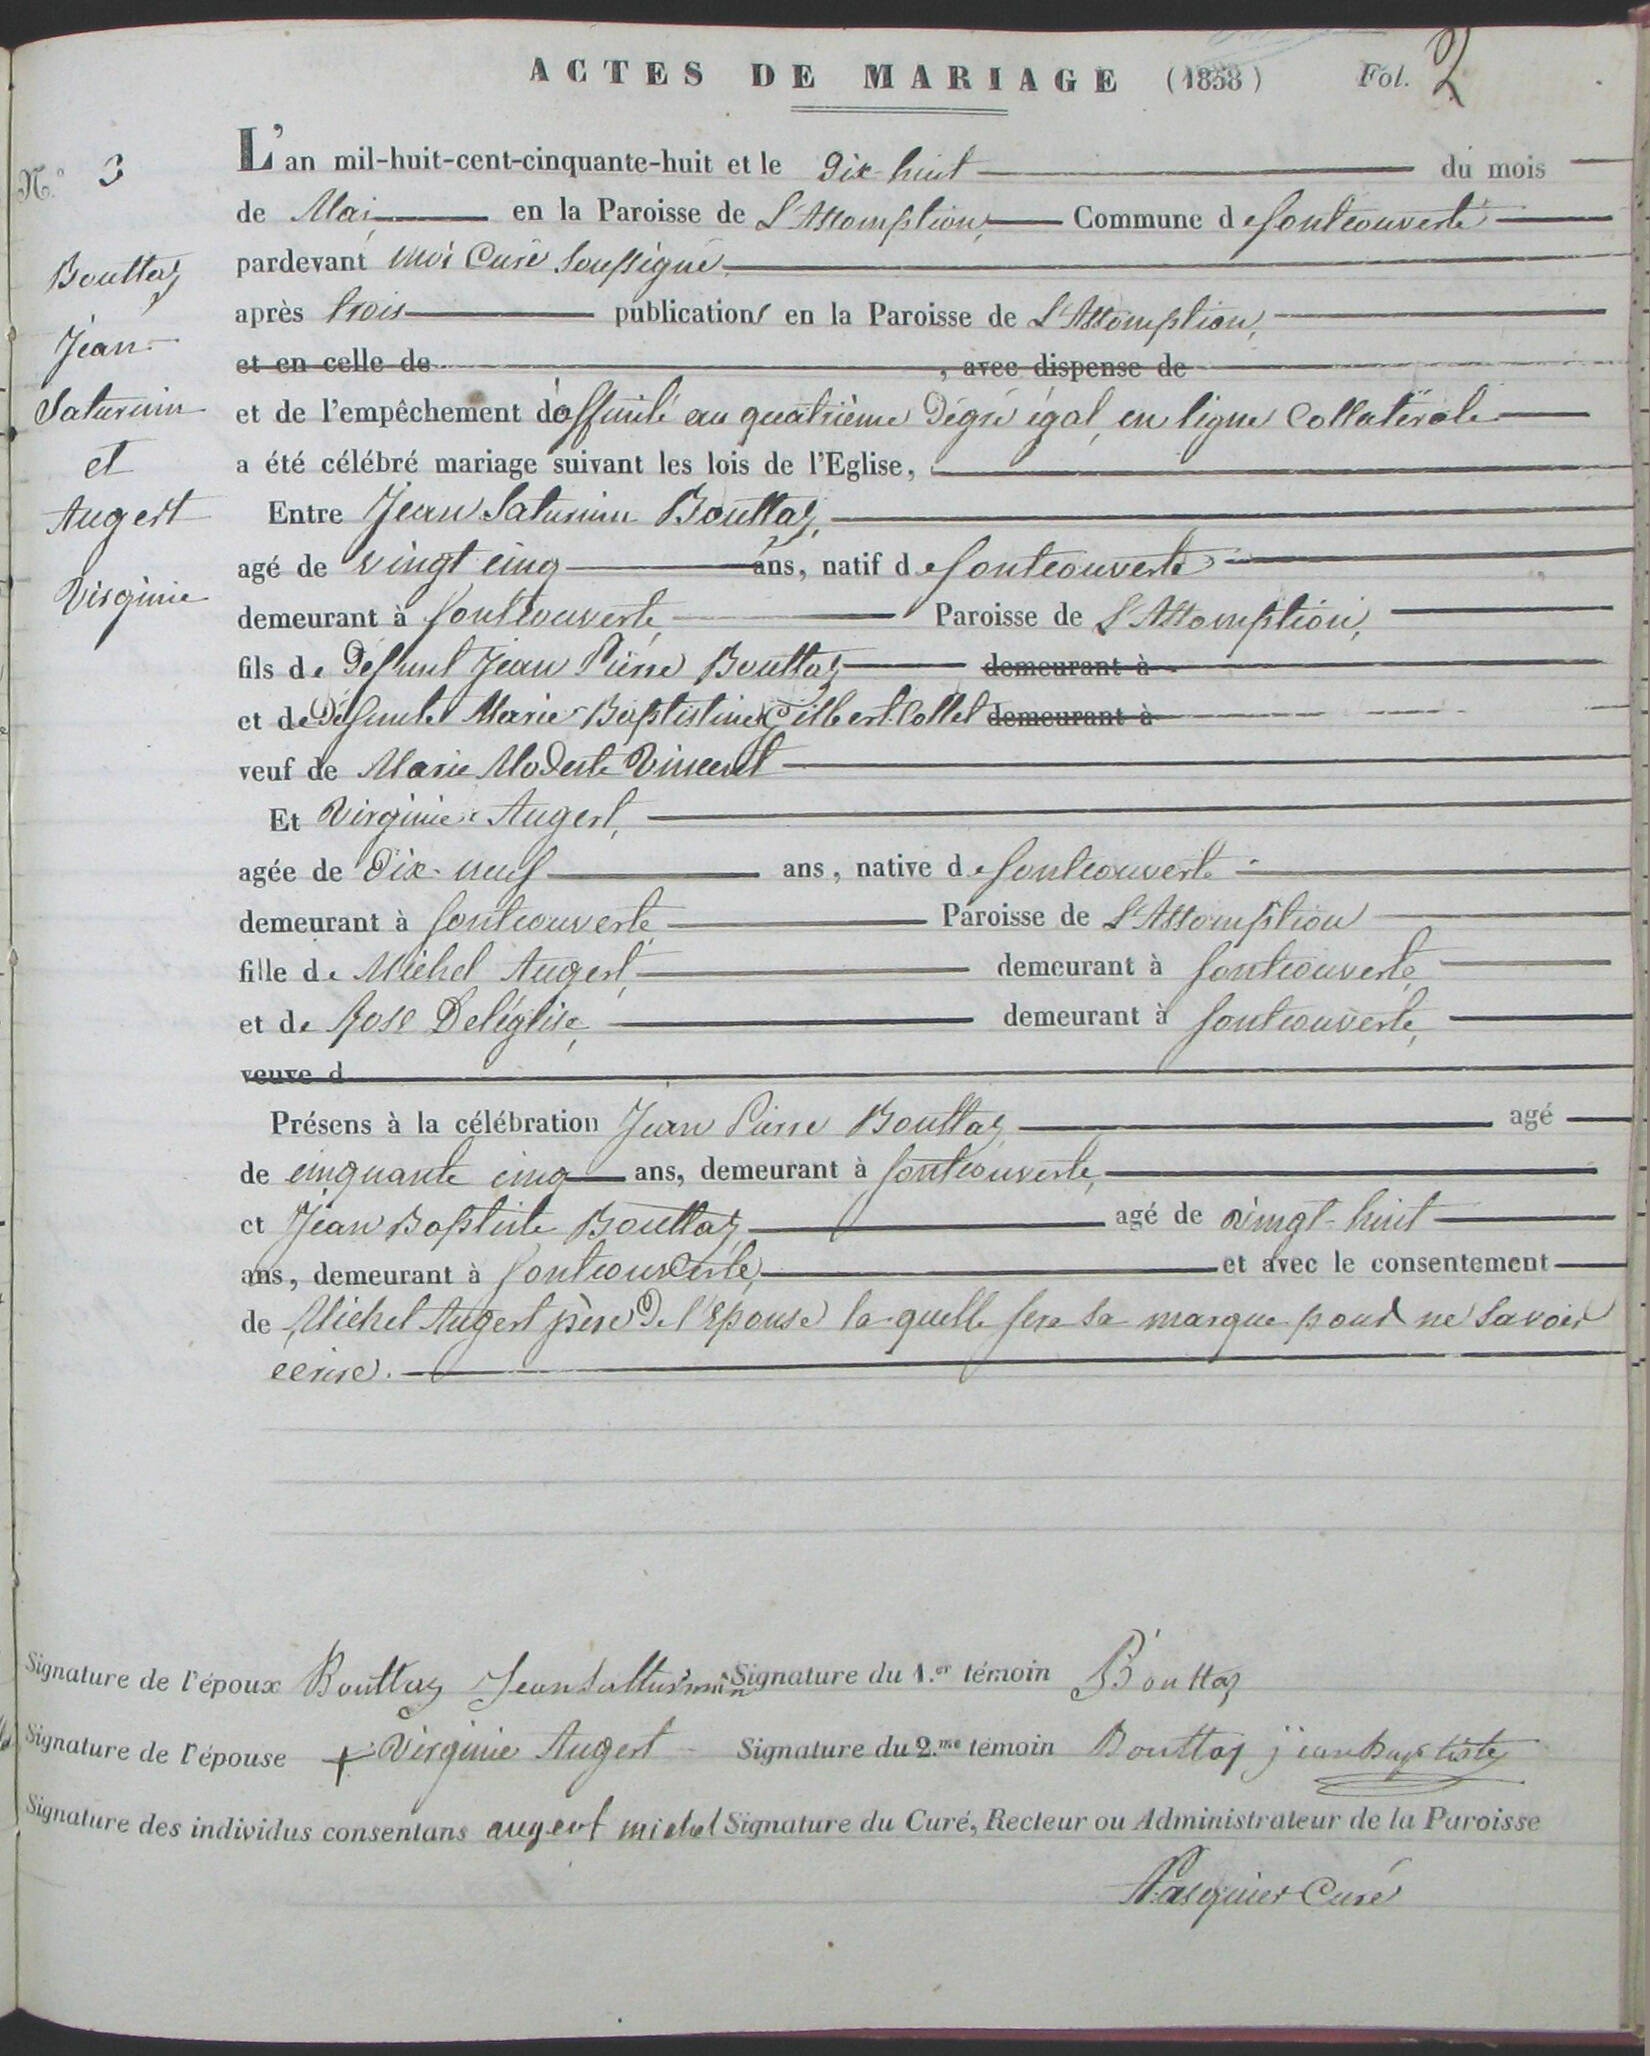 ACTES DE MARIAGE (1858) Fol. 2
N.º 3
Bouttaz
Jean
Saturnin
et
Augert
Virginie
L'an mil-huit-cent-cinquante-huit et le Dix-huit du mois
de Mai, en la Paroisse de L'Assomption, Commune de fontcouverte
pardevant moi Curé soussigné
après trois publications en la Paroisse de L'Assomption,
et en celle de , avec dispense de
et de l'empêchement d'affinité au quatrième Dégré égal, en ligne Collatérale
a été célébré mariage suivant les lois de l'Eglise,
Entre Jean Saturnin Bouttaz,
agé de vingt cinq ans, natif de fontcouverte
demeurant à fontcouverte, Paroisse de L'Assomption,
fils de Défunt Jean Pierre Bouttaz demeurant à
et de Défunte Marie Baptistine Gilbert-Collet demeurant à
veuf de Marie Modeste Vincent
Et Virginie Augert,
agée de Dix-neuf ans, native de fontcouverte
demeurant à fontcouverte, Paroisse de L'Assomption
fille de Michel Augert, demeurant à fontcouverte,
et de Rose Deléglise, demeurant à fontcouverte,
veuve d
Présens à la célébration Jean Pierre Bouttaz, agé
de cinquante cinq ans, demeurant à fontcouverte,
et Jean Baptiste Bouttaz, agé de vingt-huit
ans, demeurant à fontcouverte, et avec le consentement
de Michel Augert père De l'Epouse la quelle fera sa marque pour ne savoir
ecrire.
Signature de l'époux Bouttaz Jean Satturnin Signature du 1.er témoin Bouttaz
Signature de l'épouse + Virginie Augert Signature du 2.me témoin Bouttaz jean Baptiste
Signature des individus consentans augert michel Signature du Curé, Recteur ou Administrateur de la Paroisse
Pasquier Curé